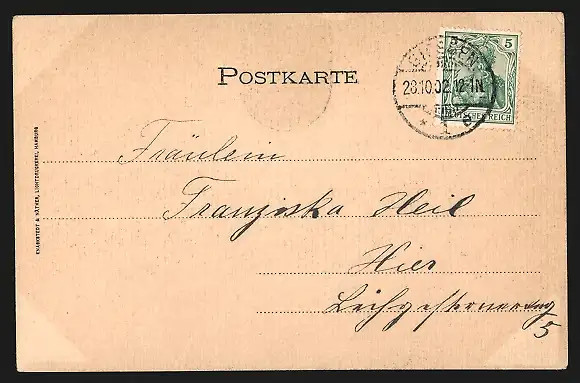 POSTKARTE
GIESSEN
28.10.02.12-1N
* 1 *
5
DEUTSCHES REICH
Fräulein
Franziska Heil
Hier
5
KNACKSTEDT & NÄTHER, LICHTDRUCKEREI, HAMBURG